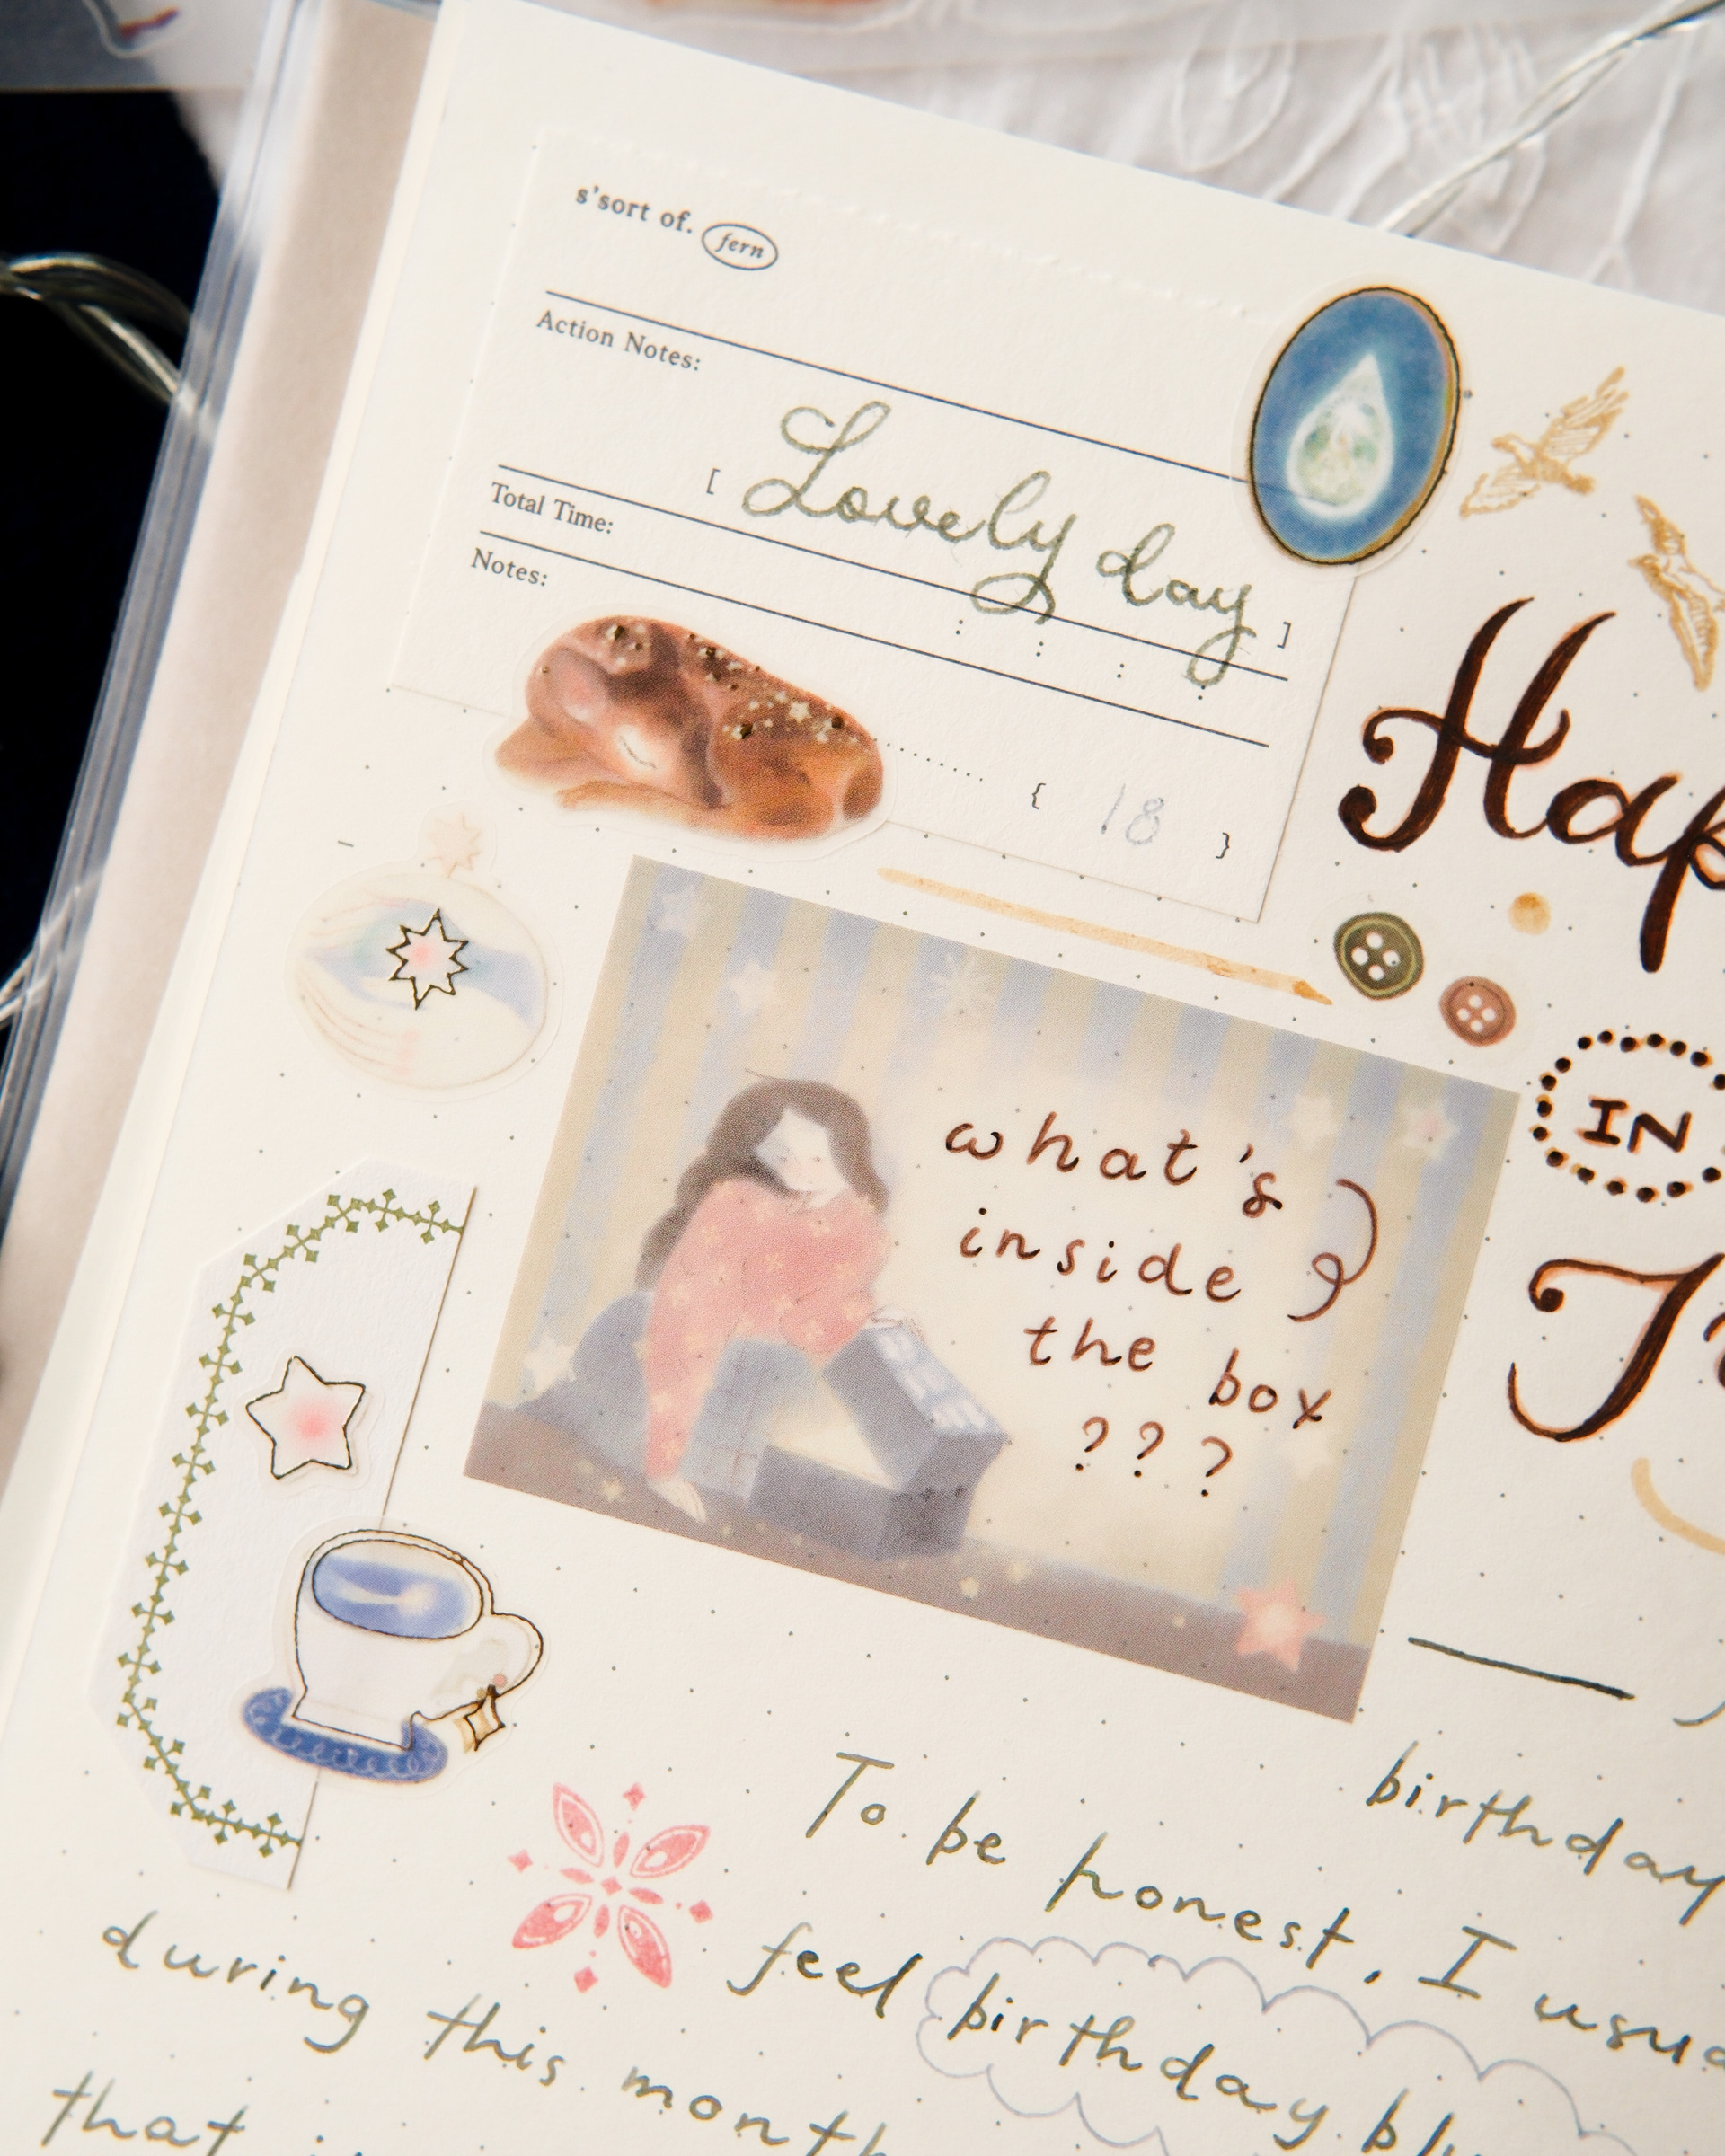 s'sort of. fern
Action Notes:
[ Lovely day ]
Total Time:
Notes:
{ 18 }
Hap
IN
what's
inside
the box
???
birthday
To be honest, I usua
feel birthday blu
during this month
that